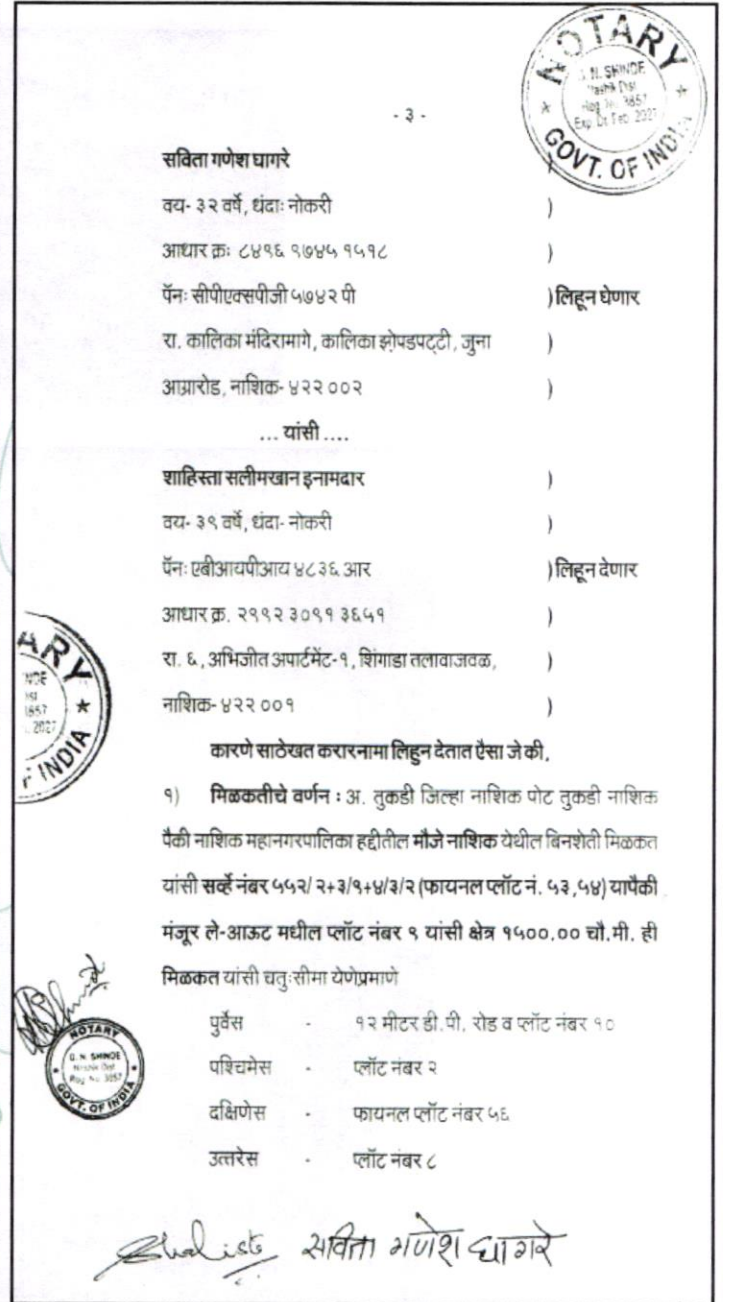 NOTARY
GOVT. OF INDIA
- ३ -
सविता गणेश घागरे )
वय- ३२ वर्षे, धंदाः नोकरी )
आधार क्रः ८४९६ ९७४५ १५१८ )
पॅनः सीपीएक्सपीजी ५७४२ पी ) लिहून घेणार
रा. कालिका मंदिरामागे, कालिका झोपडपट्टी, जुना )
आग्रारोड, नाशिक- ४२२ ००२ )
... यांसी ....
शाहिस्ता सलीमखान इनामदार )
वय- ३९ वर्षे, धंदा- नोकरी )
पॅनः एबीआयपीआय ४८३६ आर ) लिहून देणार
आधार क्र. २९९२ ३०९१ ३६५१ )
रा. ६, अभिजीत अपार्टमेंट-१, शिंगाडा तलावाजवळ, )
नाशिक- ४२२ ००१ )
कारणे साठेखत करारनामा लिहुन देतात ऐसा जे की,
१) मिळकतीचे वर्णन : अ. तुकडी जिल्हा नाशिक पोट तुकडी नाशिक
पैकी नाशिक महानगरपालिका हद्दीतील मौजे नाशिक येथील बिनशेती मिळकत
यांसी सर्व्हे नंबर ५५२/ २+३/१+४/३/२ (फायनल प्लॉट नं. ५३,५४) यापैकी
मंजूर ले-आऊट मधील प्लॉट नंबर ९ यांसी क्षेत्र १५००.०० चौ.मी. ही
मिळकत यांसी चतुःसीमा येणेप्रमाणे
पुर्वेस - १२ मीटर डी.पी. रोड व प्लॉट नंबर १०
पश्चिमेस - प्लॉट नंबर २
दक्षिणेस - फायनल प्लॉट नंबर ५६
उत्तरेस - प्लॉट नंबर ८
NOTARY
GOVT. OF INDIA
सविता गणेश घागरे